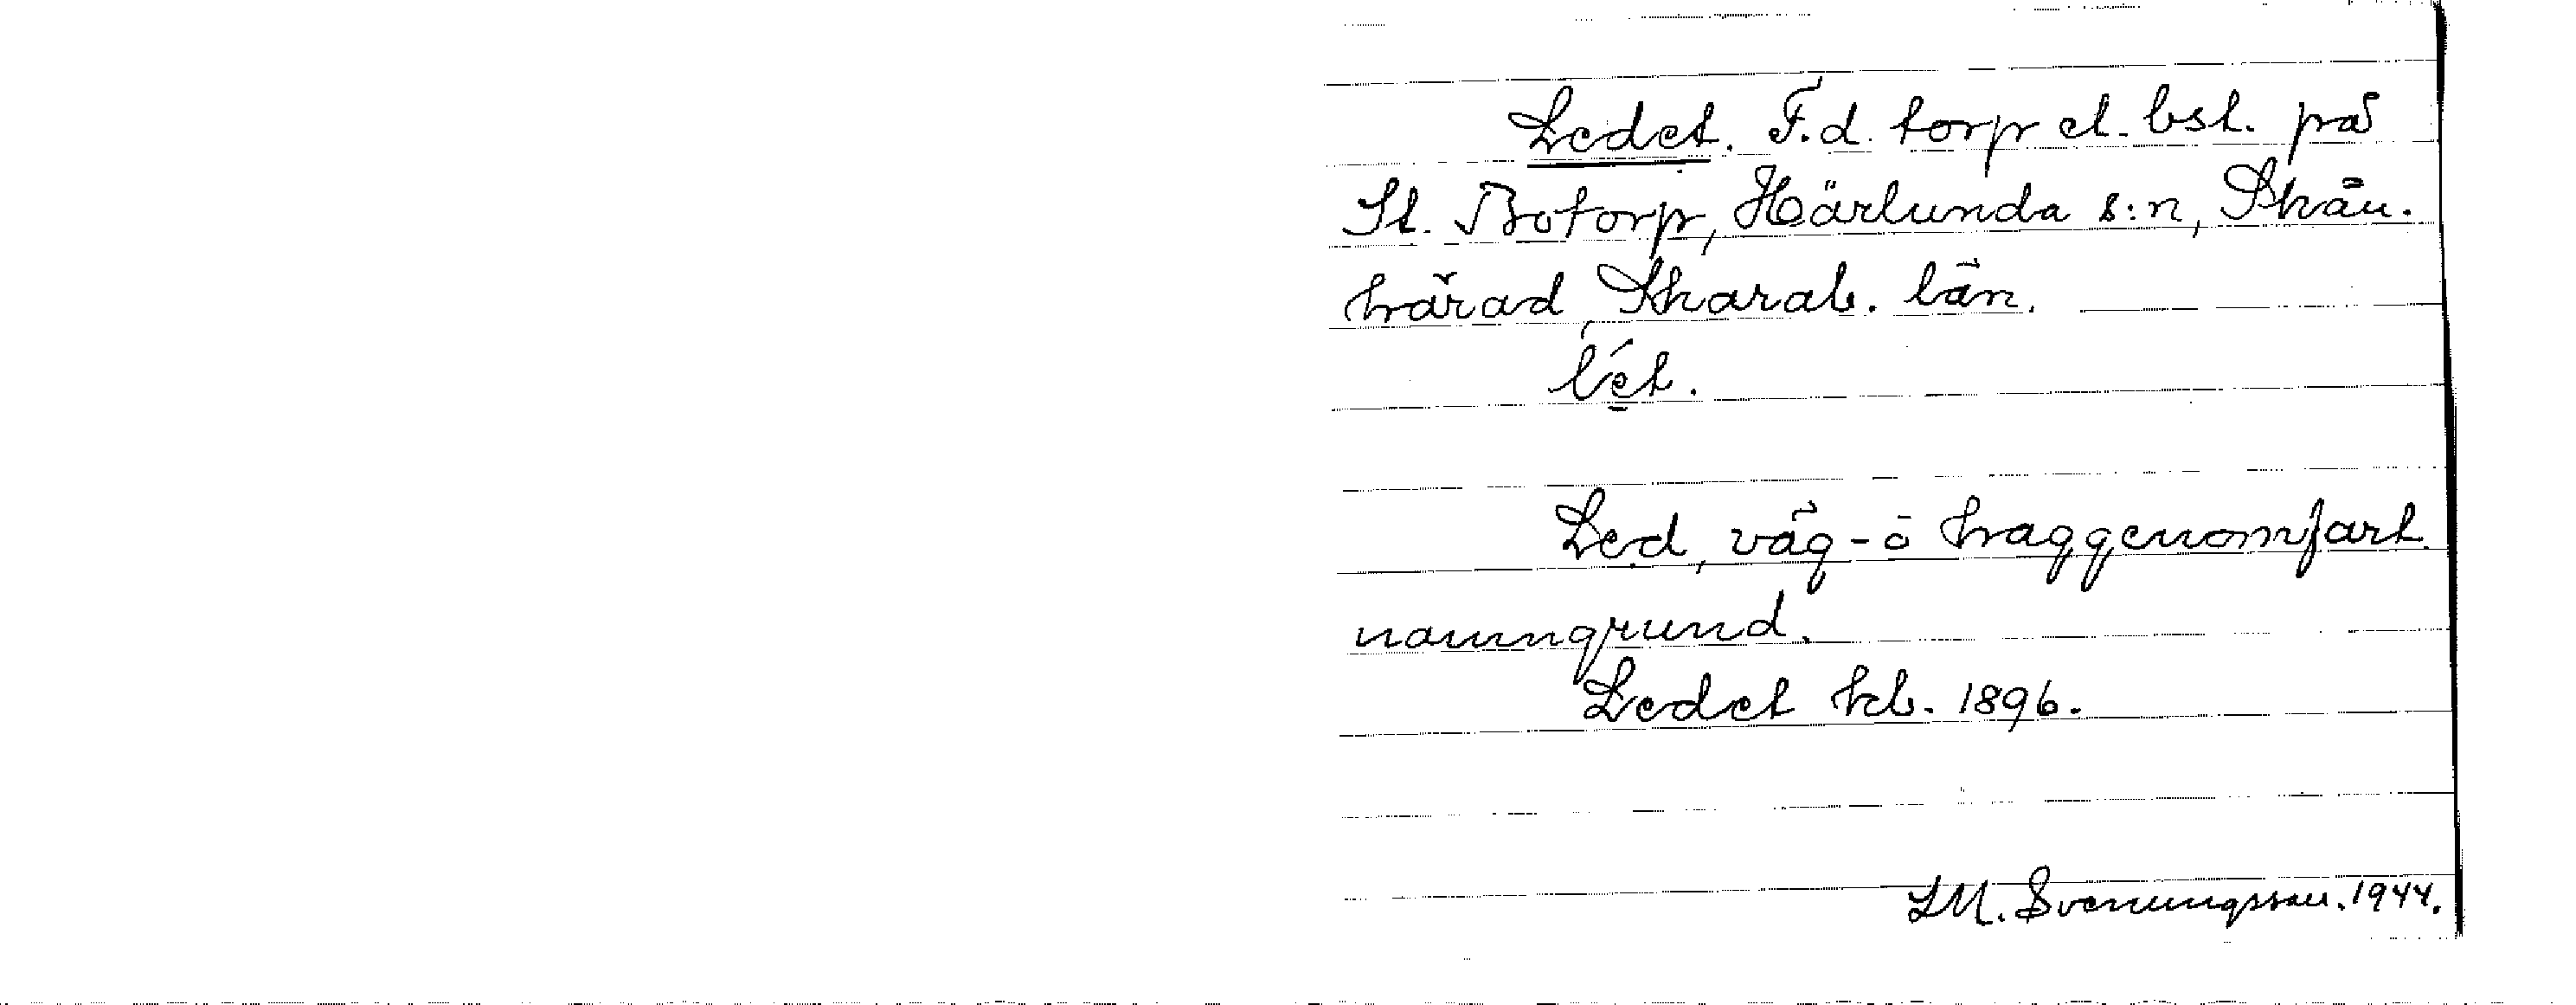 Ledet. F.d. torp el. bst. på
St. Botorp, Härlunda s:n, Skån.
härad, Skarab. län.
lét.
Led, väg- o haggenomfart
namngrund.
Ledet kb. 1896.
LM. Svenungsson. 1944.